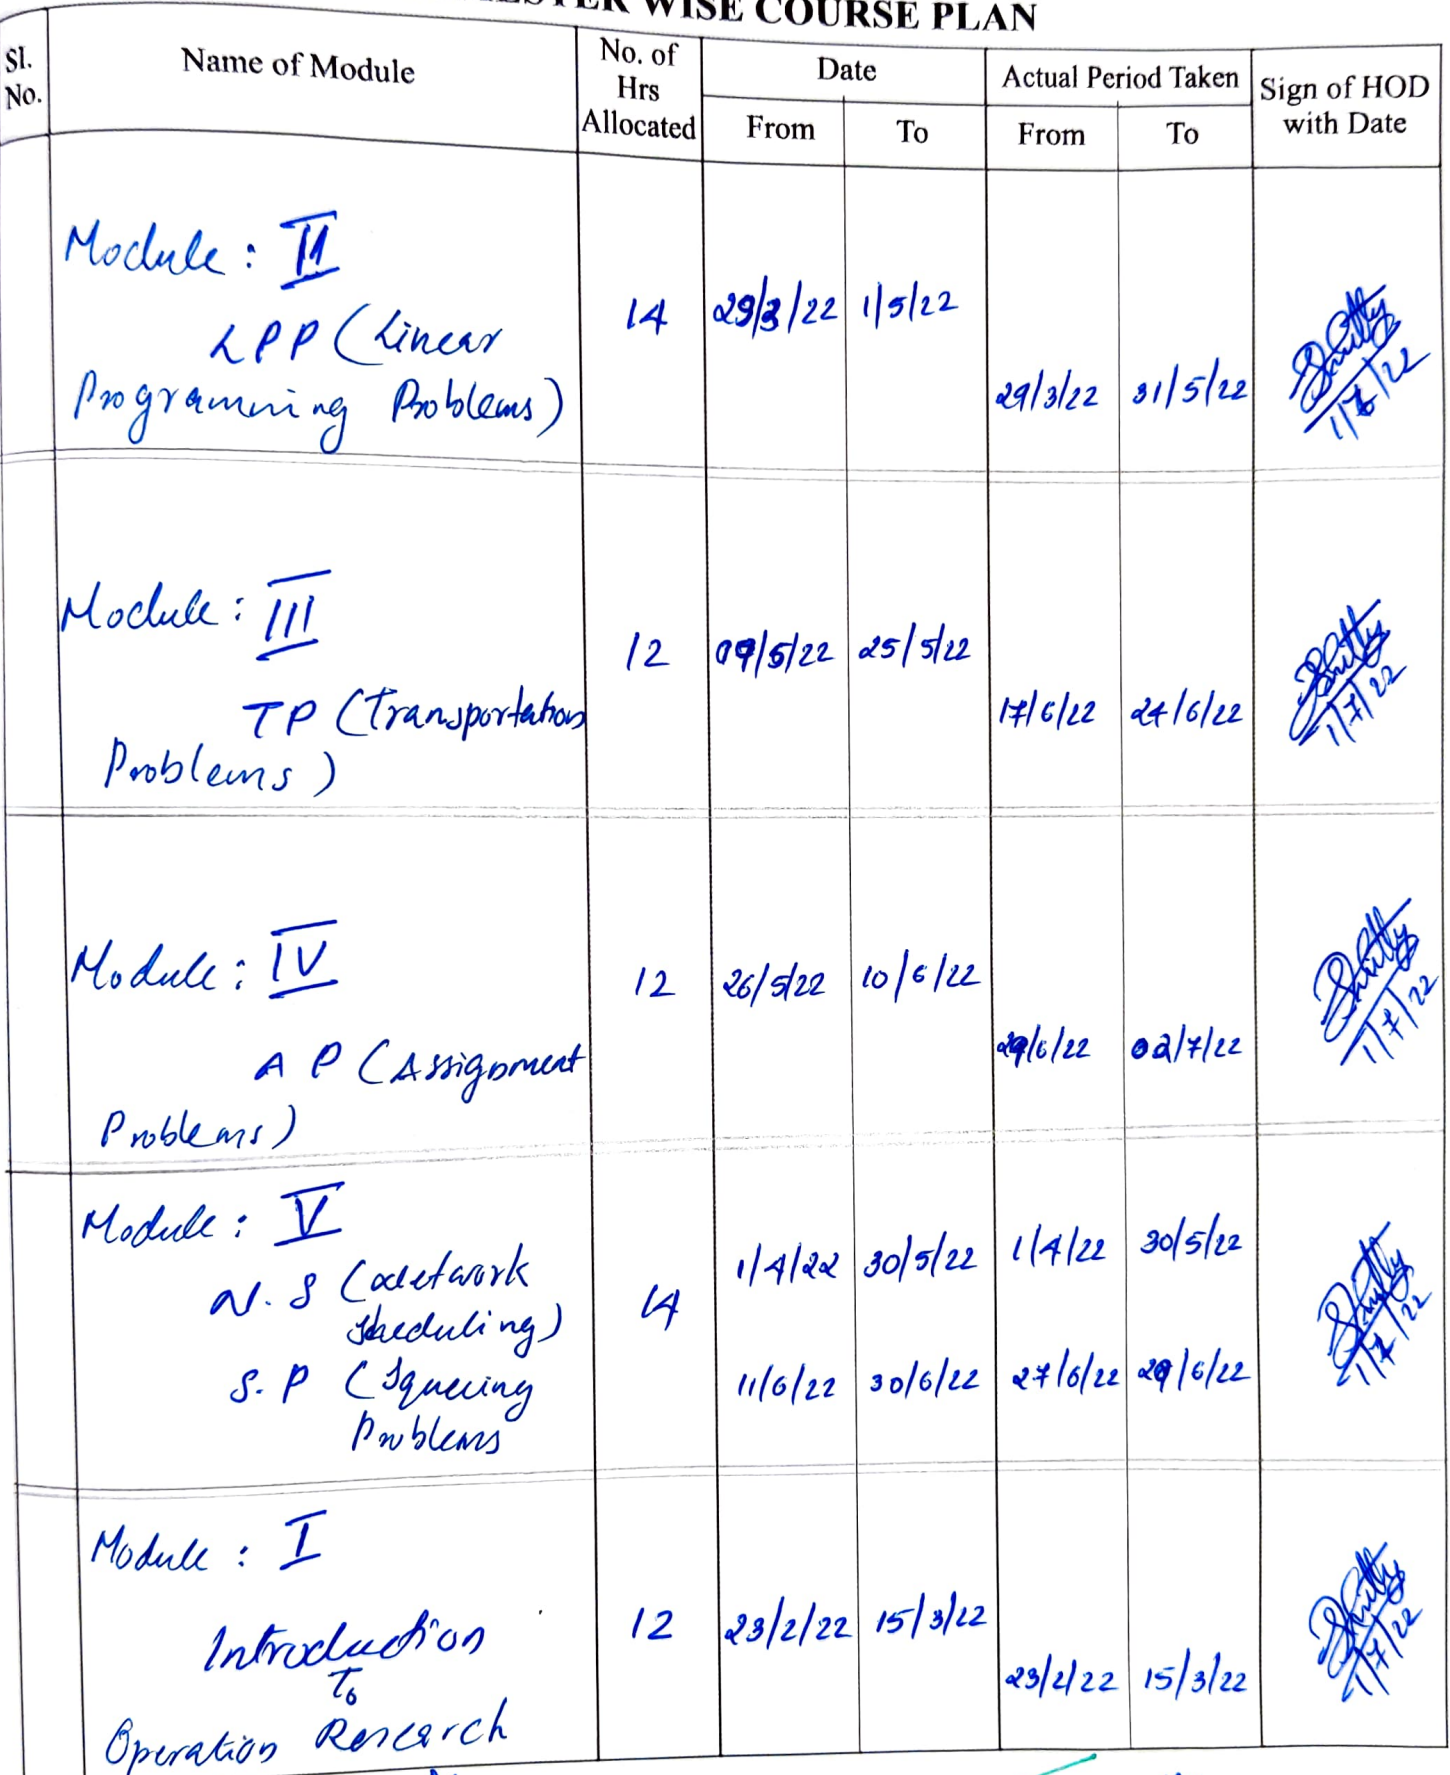 WISE COURSE PLAN
Sl. No.
Name of Module
No. of Hrs Allocated
Date
From
To
Actual Period Taken
From
To
Sign of HOD with Date
Module : II
LPP (Linear
Programming Problems)
14
29/3/22
1/5/22
29/3/22
31/5/22
Module : III
TP (Transportation
Problems)
12
09/5/22
25/5/22
17/6/22
24/6/22
1/7/22
Module : IV
AP (Assignment
Problems)
12
26/5/22
10/6/22
29/6/22
02/7/22
1/7/22
Module : V
N.S (Network
Sheduling)
S.P (Squecing
Problems
14
1/4/22
30/5/22
1/4/22
30/5/22
11/6/22
30/6/22
27/6/22
29/6/22
1/7/22
Module : I
Introduction
To
Operation Research
12
23/2/22
15/3/22
23/2/22
15/3/22
1/7/22